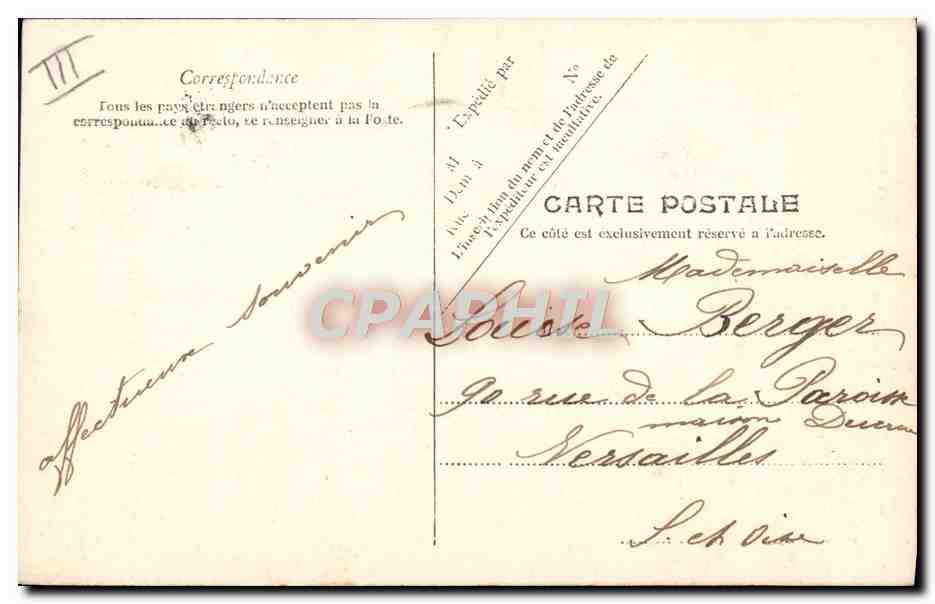 III
Correspondance
Tous les pays étrangers n'acceptent pas la
correspondance au recto, se renseigner à la Poste.
affectueux souvenir
Expédié par
M
Dem à
Rue
N°
L'inscription du nom et de l'adresse de
l'expéditeur est facultative.
CARTE POSTALE
Ce côté est exclusivement réservé a l'adresse.
CPAPHIL
Mademoiselle
Louise Berger
90 rue de la Paroisse
maison
Versailles
S. et Oise